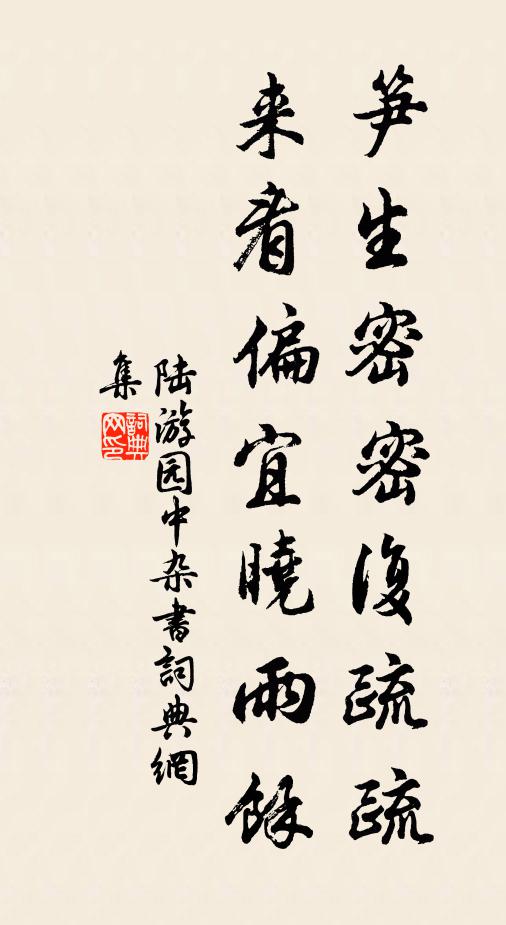 笋生密密復疏疏
来看偏宜曉雨餘
陆游园中杂書詞典網
集
詞典网印